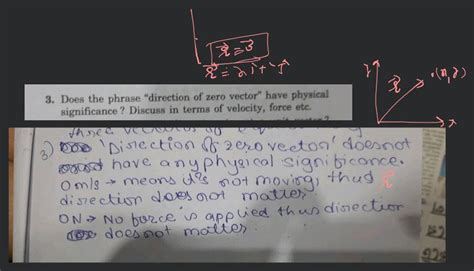 r⃗ = 0⃗
y
r⃗
(x, y)
x
3. Does the phrase "direction of zero vector" have physical
significance ? Discuss in terms of velocity, force etc.
3) 'Direction of zero vector' doesnot
have any physical significance.
0 m/s → means it's not moving, thus
direction does not matter.
0N → No force is applied thus direction
doesnot matter.